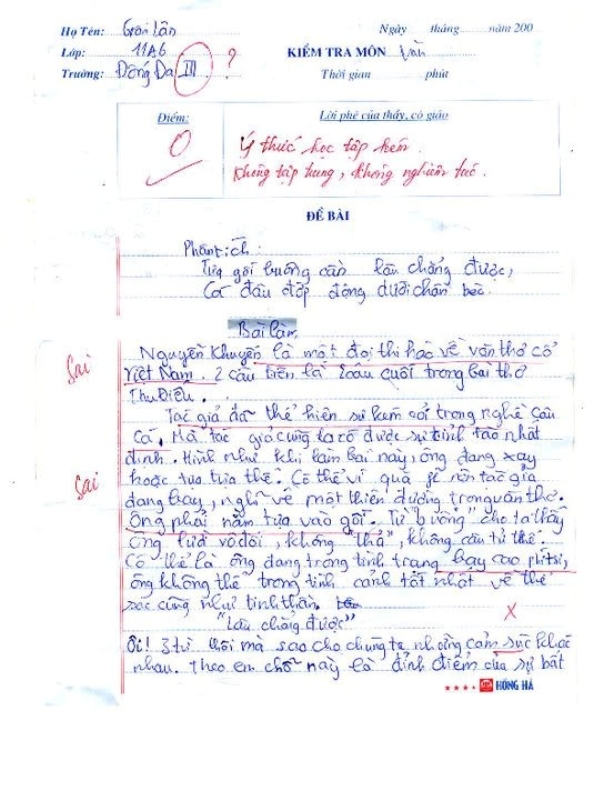 Họ Tên: Trần Lân
Ngày tháng năm 200
Lớp: 11A6
KIỂM TRA MÔN Văn
Trường: Đống Đa III ?
Thời gian phút
Điểm:
0
Lời phê của thầy, cô giáo
Ý thức học tập kém.
Không tập trung, không nghiêm túc.
ĐỀ BÀI
Phân tích:
Tựa gối buông cần lâu chẳng được,
Cá đâu đớp động dưới chân bèo.
Bài làm
Nguyễn Khuyến là một đại thi hào về văn thơ cổ
sai
Việt Nam. 2 câu trên là 2 câu cuối trong bài thơ
Thu Điếu.
Tác giả đã thể hiện sự kém cỏi trong nghề câu
cá. Mà tác giả cũng ko có được sự tỉnh táo nhất
định. Hình như khi làm bài này, ông đang xay
hoặc tựa tựa thế. Có thể vì quá nên tác giả
sai
đang bay, nghĩ về một thiên đường trong văn thơ.
Ông phải nằm tựa vào gối. Từ "buông" cho ta thấy
ông lười vô đối, không "thả", không câu tử tế.
Có thể là ông đang trong tình trạng bay cao
ông không thể trong tình cảnh tốt nhất về thể
xác cũng như tinh thần.
"Lâu chẳng được"
X
Ôi! 3 từ thôi mà sao cho chúng ta những cảm xúc khác
nhau. Theo em chỗ này là đỉnh điểm của sự bất
HỒNG HÀ